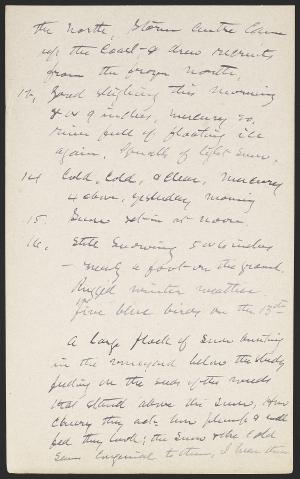 the North, Storm Centre Came
up the Coast & drew recruits
from the frozen North,
12, Good sleighing this morning
8 or 9 inches, mercury 20,
river full of floating ice
again. Squalls of light Snow.
14 Cold, Cold, & Clear, Mercury
4 above, yesterday morning
15. Snow set in at noon.
16. Still Snowing 5 or 6 inches
— nearly a foot on the ground.
Rugged winter weather
Five blue birds on the 13th
A large flock of Snow bunting
in the vineyard below the study
feeding on the seeds of the weeds
that stand above the Snow, How
Cheery they are: how plump & well
fed they look; the Snow & the Cold
Seem Congenial to them, I hear them